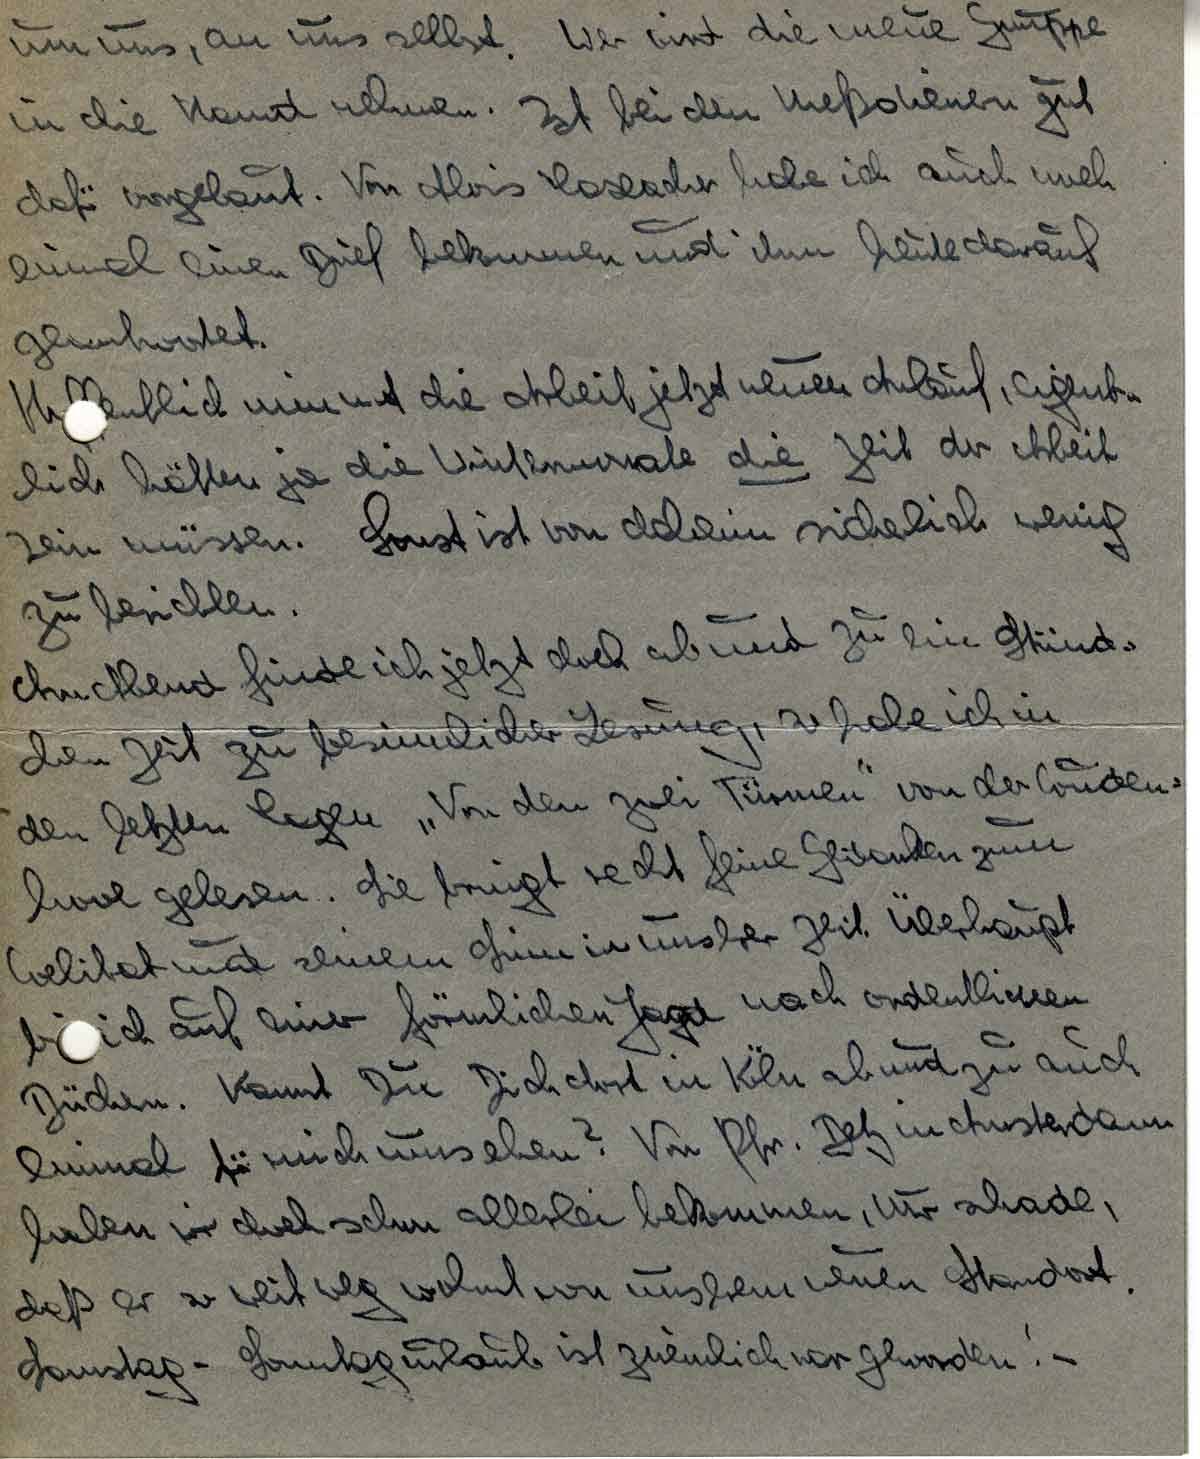 um uns, an uns selbst. Wer wird die neue Gruppe
in die Hand nehmen. Ist bei den Meßdienern gut
dafür vorgebaut. Von Alois habe ich auch noch
einmal einen Brief bekommen und ihm heute darauf
geantwortet.
Hoffentlich nimmt die Arbeit jetzt neuen Anlauf, eigent-
lich hätten ja die Wintermonate die Zeit der Arbeit
sein müssen. Sonst ist von daheim sicherlich wenig
zu berichten.
Am Abend finde ich jetzt doch ab und zu ein Stünd-
chen Zeit zu besinnlicher Lesung, so habe ich in
den letzten Tagen „Von den zwei Türmen“ von der Couden-
hove gelesen. Sie bringt recht feine Gedanken zum
Zölibat und seinem Sinn in unsrer Zeit. Überhaupt
bin ich auf einer förmlichen Jagd nach ordentlichen
Büchern. Kannst Du Dich dort in Köln ab und zu auch
einmal für mich umsehen? Von Pfr. in Amsterdam
haben wir doch schon allerlei bekommen, nur schade,
daß er so weit weg wohnt von unsrem neuen Standort.
Samstag - Sonntagurlaub ist ziemlich rar geworden! -